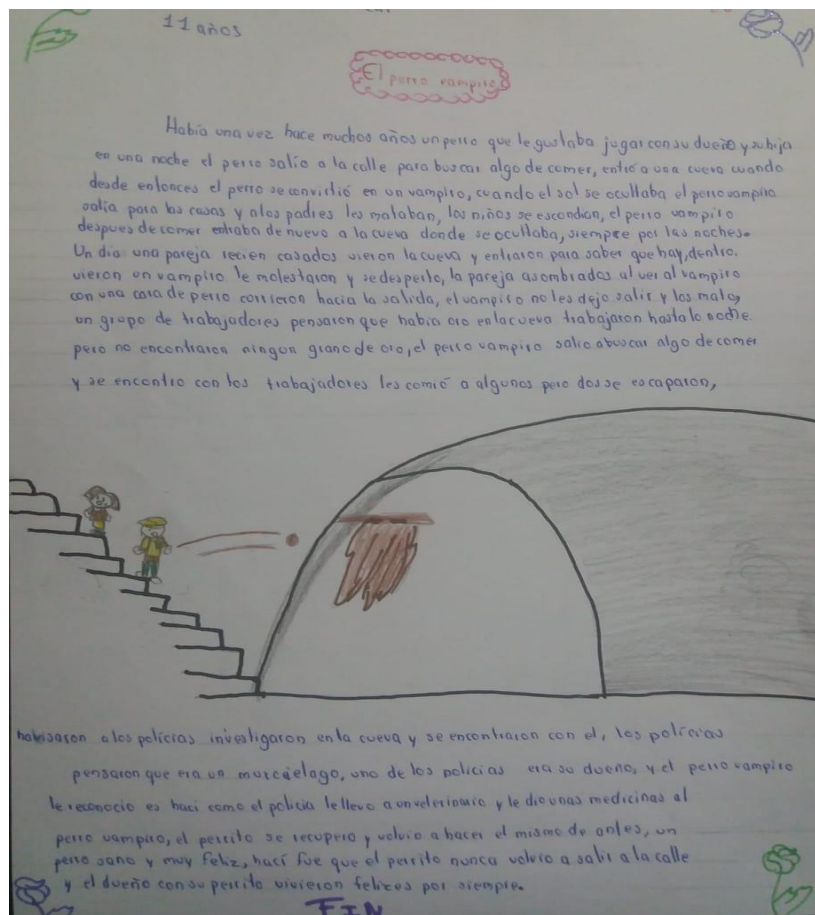 11 años
El perro vampiro
Había una vez hace muchos años un perro que le gustaba jugar con su dueño y su hija
en una noche el perro salio a la calle para buscar algo de comer, entró a una cueva cuando
desde entonces el perro se convirtió en un vampiro, cuando el sol se ocultaba el perro vampiro
salía para las casas y a los padres les mataban, los niños se escondian, el perro vampiro
despues de comer entraba de nuevo a la cueva donde se ocultaba, siempre por las noches.
Un dia una pareja recien casados vieron la cueva y entraron para saber que hay, dentro.
vieron un vampiro le molestaron y se desperto, la pareja asombrados al ver al vampiro
con una cara de perro corrieron hacia la salida, el vampiro no les dejo salir y los mato,
un grupo de trabajadores pensaron que habia oro en la cueva trabajaron hasta lo noche.
pero no encontraron ningun grano de oro, el perro vampiro salio a buscar algo de comer
y se encontro con los trabajadores les comió a algunos pero dos se escaparon,
habisaron a los policías investigaron en la cueva y se encontraron con el, los policías
pensaron que era un murcielago, uno de los policias era su dueño, y el perro vampiro
le reconocio es haci como el policia le llevo a un veterinario y le dio unas medicinas al
perro vampiro, el perrito se recupero y volvio a hacer el mismo de antes, un
perro sano y muy feliz, hací fue que el perrito nunca volvio a salir a la calle
y el dueño con su perrito vivieron felices por siempre.
FIN